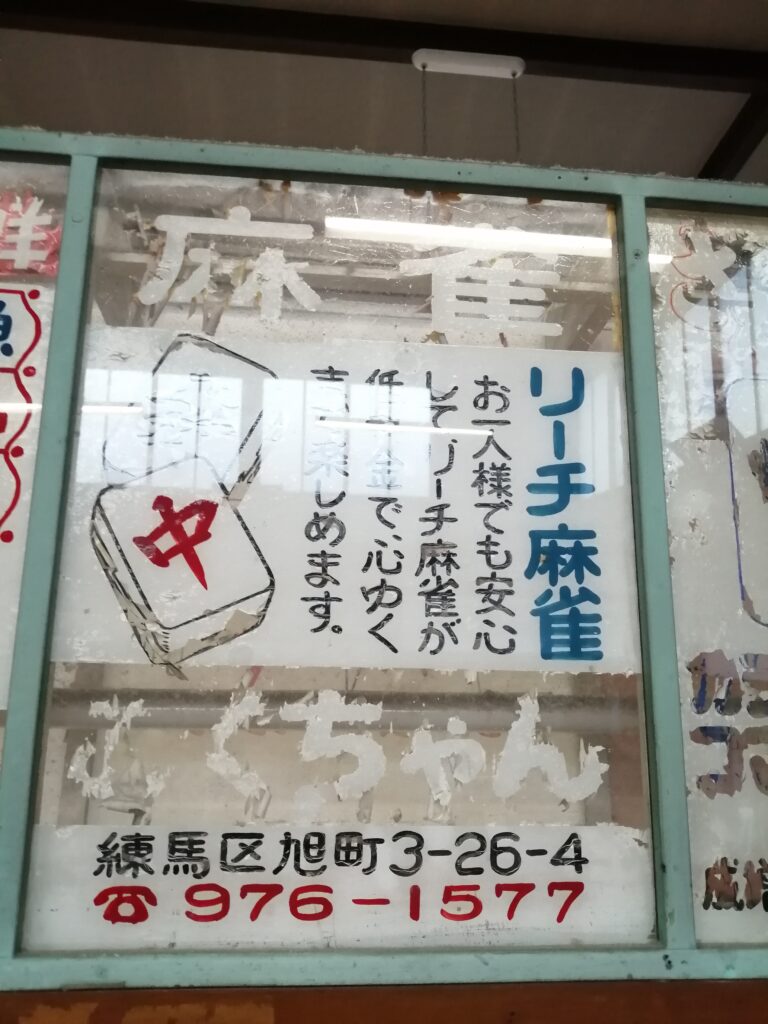 麻雀
リーチ麻雀
お一人様でも安心
してリーチ麻雀が
低料金で、心ゆく
まで楽しめます。
中
くちゃん
練馬区旭町3-26-4
☎976-1577